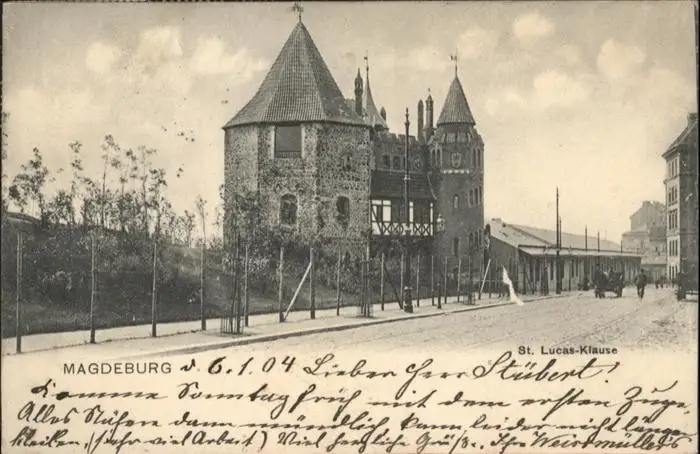 St. Lucas-Klause
MAGDEBURG d. 6.1.04 Lieber Herr Stübert!
Komme Sonntag früh mit dem ersten Zuge,
Alles Nähere dann mündlich kann leider nicht länger
bleiben, (sehr viel Arbeit) Viel herzliche Grüße. Ihr